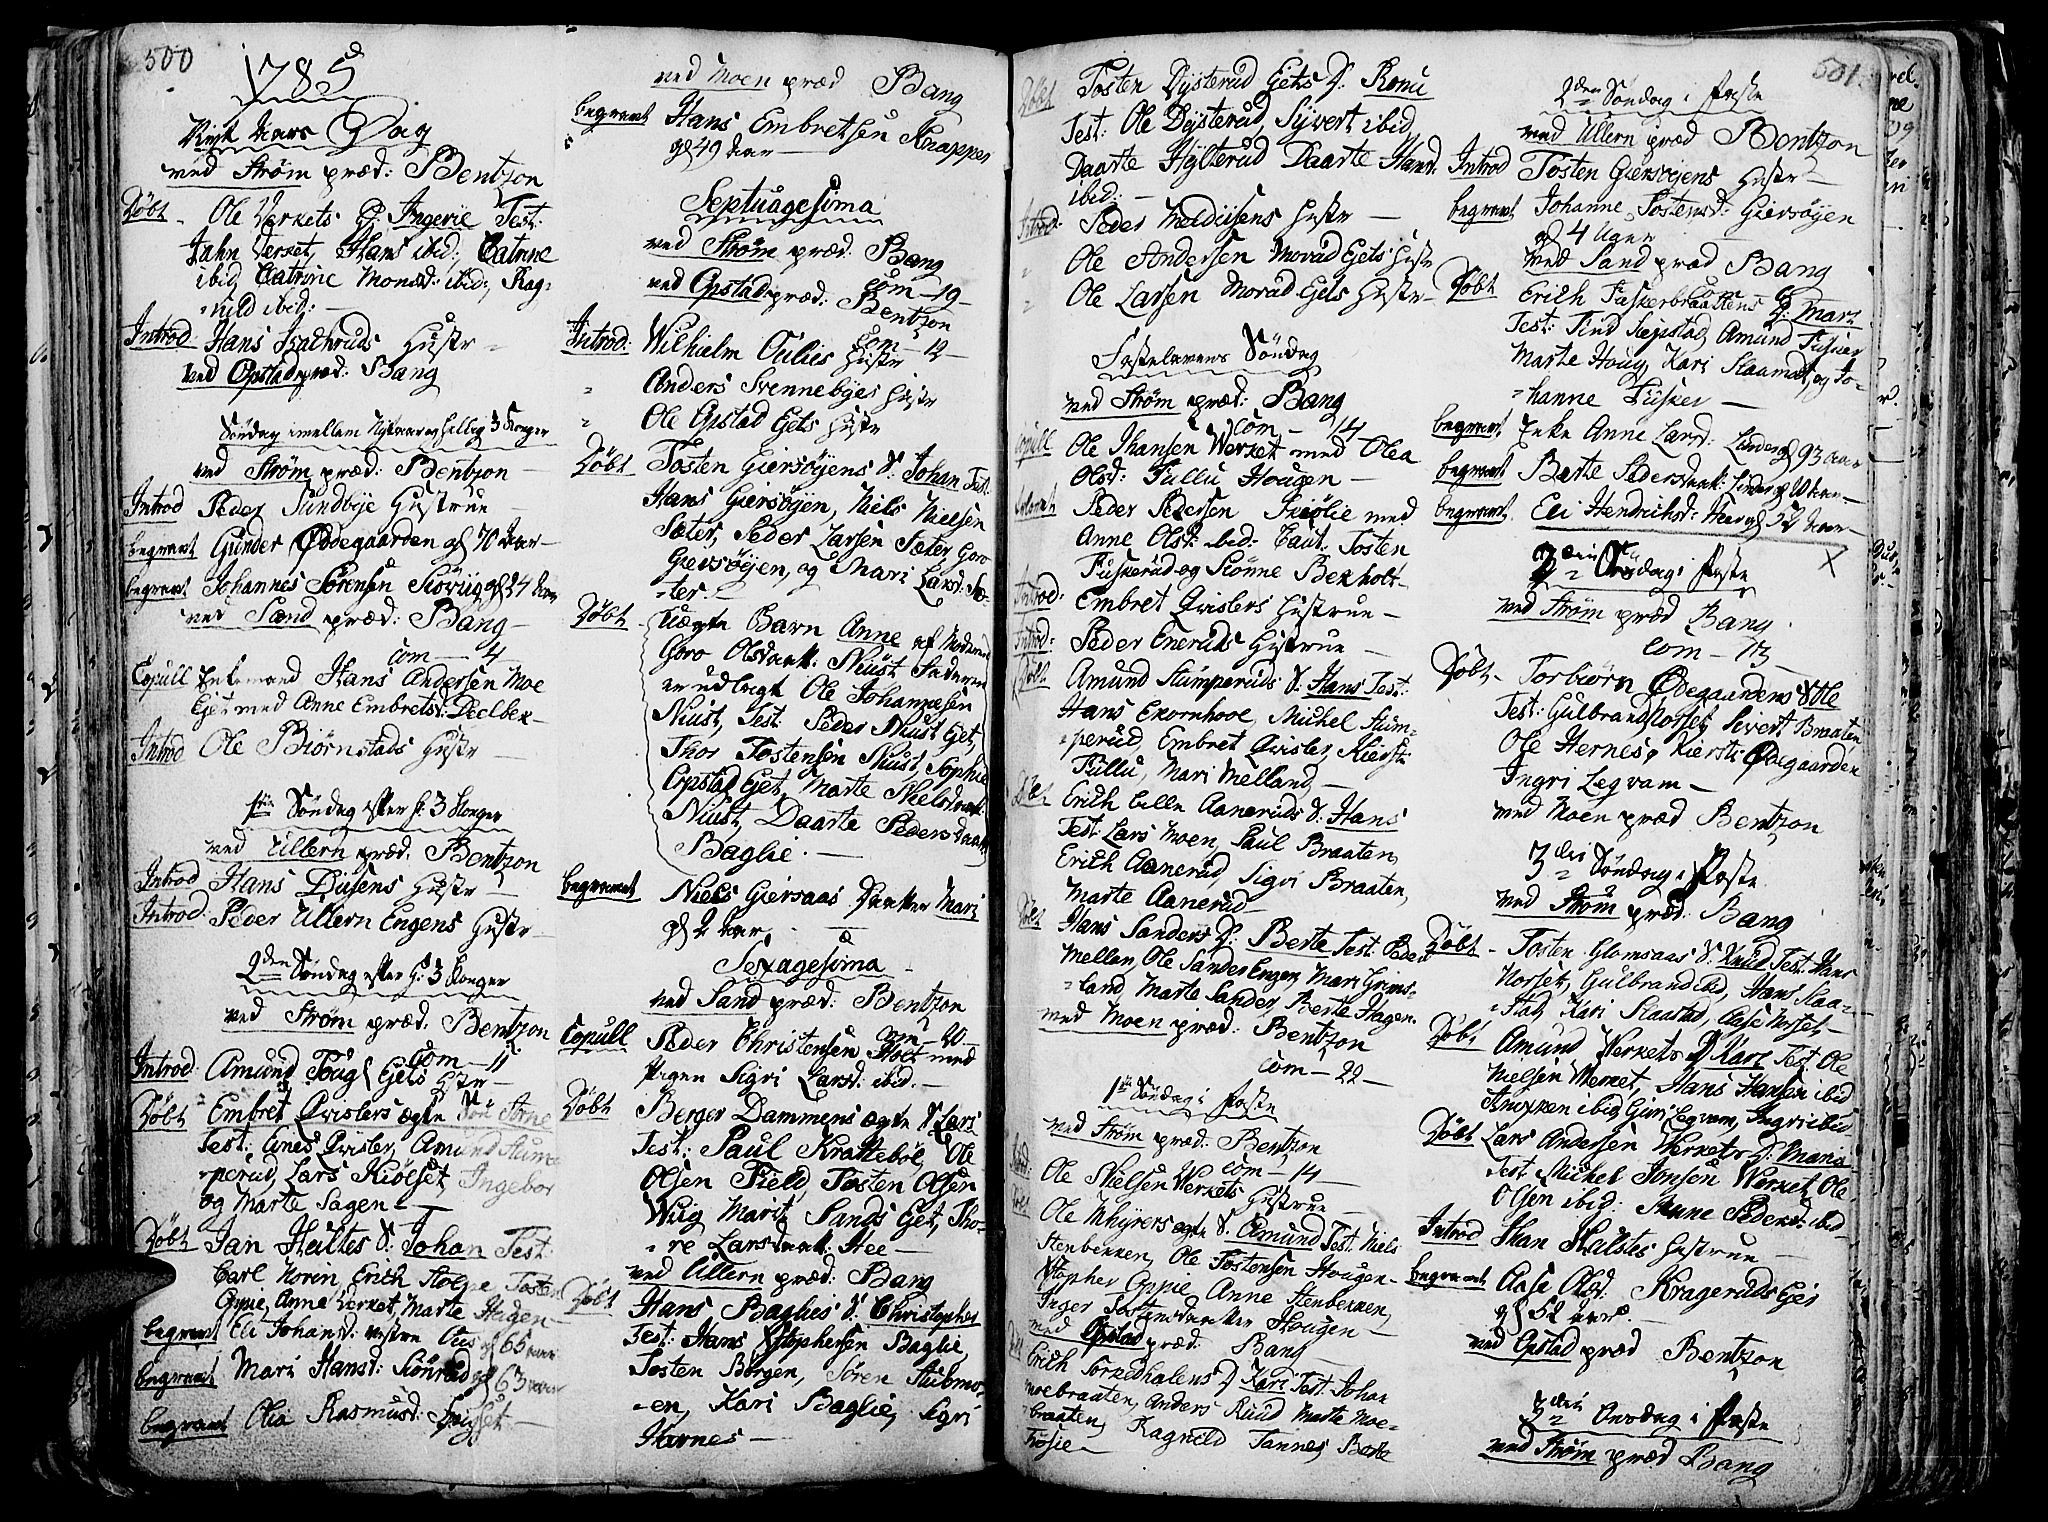 500
1785
Nyt Aars Dag
ved Strøm præd: Bentzon
Døbt Ole Verkets D: Ingerie Test:
Jahn Verket, Hans ibid: Catrine
ibid Catrine Monsd: ibid:, Rag-
nild ibid: —
Introd Hans Kachruds Hustr
ved Opstad præd: Bang
Søndag imellem Nytaar og hellig 3 Konger
ved Strøm præd: Bentzon
Introd Peder Sundbye Hustrue —
begravet Gunder Ødegaarden gl 70 Aar —
begravet Johannes Sørensen Siøviig gl 24 Aar
ved Sand præd: Bang —
Com — 4
Copull Enkemand Hans Andersen Moe
Ejet med Anne Embretsd: Deelbek —
Introd Ole Biørnstads Hustr —
1ste Søndag efter h: 3 Konger
ved Ullern præd: Bentzon
Introd Hans Diisens Hustr —
Introd. Peder Ullern Engens Hustr —
2den Søndag efter h: 3 Konger
ved Strøm præd: Bentzon
Com — 11
Introd Amund Toug Ejets Hstr —
Døbt Embret Qvislers ægte Søn Arne
Test: Anes Qvisler, Amund Stum-
perud, Lars Kiølset, Ingebor
og Marte Sagen —
Døbt Jan Hultes S: Johan Test:
Carl Norin, Erich Stolpe Tosten
Oppie, Anne Verket, Marte Heigen —
begravet Eli Johansd: vestre Aas gl 65 aar
begravet Mari Hansd: Skiønrud gl 63 aar
begravet Olia Rasmusd: —
ved Moen præd Bang
begravet Hans Embretsen Knapper
gl 49 Aar —
Septuagesima
ved Strøm præd: Bang
Com — 19 —
ved Opstad præd: Bentzon
Com — 12 —
Introd: Wilhielm Oulies Hustr
Anders Svennebyes Hustr
Ole Opstad Ejets Hustr
Døbt Tosten Giersøyens S: Johan Test:
Hans Giersøyen, Niels Nielsen
Sæter, Peder Larsen Sæter Goro
Giersøyen, og Mari Larsd: Sæ-
ter. —
Døbt Uægte Barn Anne af Moderen
Goro Olsdaatt: Niust Faderen
er udlagt Ole Johannesen
Niust, Test: Peder Niust Ejet,
Thor Tostensen Niust, Sophie
Opstad Ejet, Marte Nielsdaatt:
Niust, Daarte Pedersdaatt:
Baglie. —
begravet Niels Giersaas Daatter Mari
gl 2 Aar. —
Sexagesima
ved Sand præd: Bentzon
Com — 20 —
Copull Peder Christensen Holt med
Pigen Sigri Larsd: ibid. —
Døbt Berger Dammens ægte S Lars
Test: Paul Krattebøl, Ole
Olsen Pield, Tosten Olsen
Wiig Marit Sands Ejet, Tho-
re Larsdaatt: Hee —
ved Ullern præd: Bang
Døbt Hans Baglies S: Christopher
Test: Hans Stophersen Baglie,
Tosten Borgen, Søren Stubmo-
en, Kari Baglie, Sigri
Harnes —
501.
Døbt Tosten Dysterud Ejets D: Ronu
Test: Ole Dysterud, Syvert ibid
Daarte Hylterud Daarte Hansd:
ibid: —
Introd: Peder Moldiisens Hustr —
Ole Andersen Morud Ejets Hustr
Ole Larsen Morud Ejets Hustr —
Fastelavens Søndag
ved Strøm præd: Bang
Com — 14
Copull Ole Jhansen Werket med Olea
Olsd: Fullu Hougen —
Peder Pedersen Friølie med
Anne Olsd: ibid: Caut: Tosten
Fuskerud og Siønne Bekholt —
Introd: Embret Qvislers Hustrue —
Introd: Peder Eneruds Hustrue —
Døbt Amund Stumperuds S: Hans Test:
Hans Ekornhool, Michel Stum-
perud, Embret Qvisler, Kiersti
Fullu, Mari Melland, —
Døbt Erich Lille Aaneruds S: Hans
Test: Lars Moen, Paul Braaten,
Erich Aanerud, Sigri Braaten,
Marte Aanerud —
Døbt Hans Sanders D: Berte Test: Peder
Mellem, Ole Sander Engen, Mari Grims-
land, Marte Sander, Berte Hagen.
ved Moen præd: Bentzon
Com — 22 —
1ste Søndag i Faste
ved Strøm præd: Bentzon
Com — 14 —
Introd: Ole Nielsen Verkets Hustrue —
Døbt Ole Mhyrers ægte S. Amund Test: Niels
Stenbekken, Ole Tostensen Hougen —
Stopher Oppie Anne Stenbekken,
Inger Tostensdaatter Hougen —
ved Opstad præd: Bang —
Døbt Erich Sorkedhalens D Kari Test: Johan
Moebraaten, Anders Ruud Marte Moe-
braaten, Ragnild Tannes, Berte
Frosie —
2den Søndag i Faste
ved Ullern præd Bentzon
Introd Tosten Giersøyens Hustr —
begravet Johanne Tostensd: Giersøyen
gl 4 Uger —
ved Sand præd Bang
Døbt Erich Fuskerbraatens D: Mari
Test: Find Siepstad, Amund Fusker
Marte Houg, Kari Slaamot, og Jo-
hanne Fusker —
begravet Enke Anne Larsd: Linder gl 93 aar
begravet Berte Pedersdaatt: Linder gl 10 Aar —
begravet Eli Hendrichsd: Heer gl 32 Aar —
X
2den Onsdag i Faste
ved Strøm præd Bang
Com — 13 —
Døbt Torbiørn Ødegaardens S Ole
Test: Gulbrand Norset Severt Braaten,
Ole Hernes, Kierstie Ødegaarden
Ingri Legvam —
ved Moen præd Bentzon
3die Søndag i Faste
ved Strøm præd: Bang
Døbt Tosten Glomsaas S. Knud Test: Hans
Norset, Gulbrand ibid, Hans Slaa-
stad Kari Slaastad, Aase Norset —
Døbt Amund Werkets D Kari Test Ole
Nielsen Werket, Hans Hansen ibid
ibid, Guri Legvam, Ingri ibid
Døbt Lars Andersen Werkets D: Maria
Test: Michel Jonsen Werket Ole
Olsen ibid: Anne Pedersd: ibid —
Introd Jhan Hulstes Hustrue —
begravet Aase Olsd: Krageruds Ejet
gl 52 aar.
ved Opstad præd Bentzon
3die Onsdag i Faste
ved Strøm præd Bang